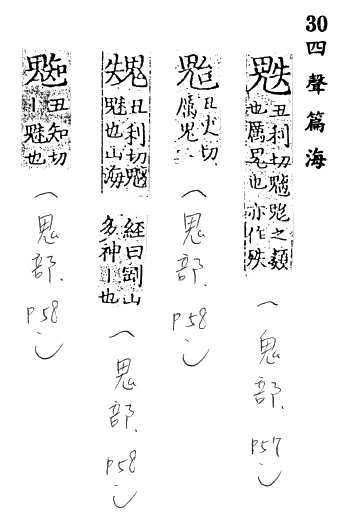 30四聲篇海
䰡
丑利切
之類
也厲鬼也亦作
(鬼部. P57.)
切
厲鬼
(鬼部. P58.)
丑利切
魅也山海
經曰剛山
多神〡也
(鬼部. P58.)
丑知切
〡魅也
(鬼部. P58.)